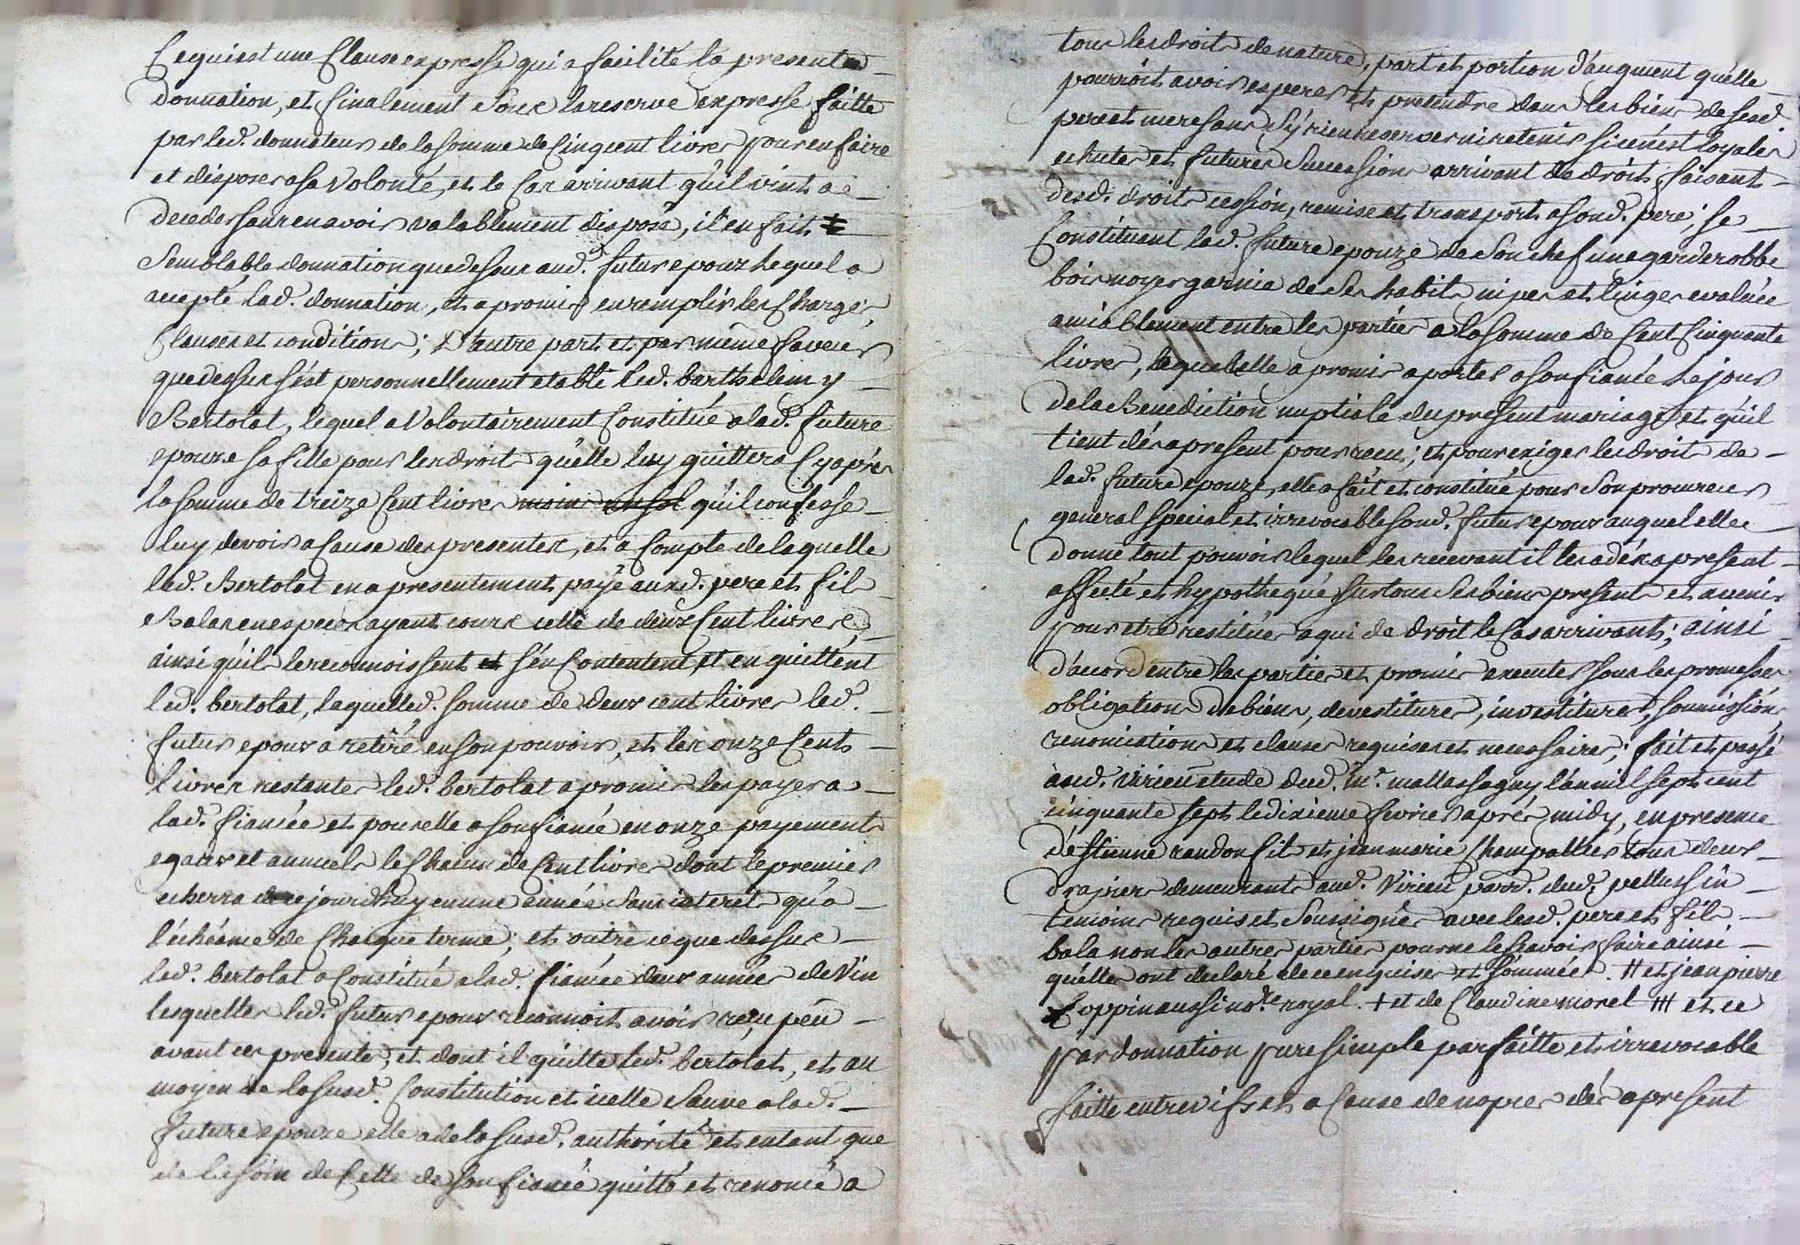 Ce qui est une Clause expresse qui a facilité la presente
donnation, et finalement Sous la reserve expresse faitte
par led. donnateur de la somme de Cinq cent livres pour en faire
et disposer a sa Volonté, et le Cas arrivant qu'il vint a
deceder sans en avoir valablement disposé, il en fait
Semblable donnation que dessus aud. futur epoux Lequel a
accepté lad. donnation, et a promis en remplir les Charges,
Clauses et conditions; D'autre part et par même faveur
que dessus s'est personnellement etably led. barthelemy
Bertolat, lequel a Volontairement Constitué a lad. future
epouze sa fille pour les droits qu'elle luy quittera Cy apres
la somme de treize Cent livres moins un sol qu'il confesse
luy devoir a Cause des presentes, et a Compte de laquelle
led. Bertolat en a presentement payé auxd. pere et fils
Bala en especes ayant cours celle de deux Cent livres
ainsi qu'ils le reconnoissent et s'en Contentent, et en quittent
led. bertolat, laquelle d. somme de deux cent livres led.
futur epoux a retiré en son pouvoir, et les onze Cents
livres restantes led. bertolat a promis les payer a
lad. fiancée et pour elle a son fiancé en onze payements
egaux et annuels le Chacun de Cent livres dont le premier
echerra de ce jourdhuy en une année Sans interêt qu'a
l'échéance de Chaque terme; et outre ce que dessus
led. bertolat a Constitué a lad. fiancée deux années de Vin
lesquelles led. futur epoux reconnoit avoir reçu peu
avant ces presentes, et dont il quitte led. bertolat, et au
moyen de la susd. Constitution et icelle Sauve a lad.
future epouze elle a de la susd. authorité et entant que
de besoin de Celle de son fiancé quitté et renoncé a
tous les droits de nature, part et portion d'augment qu'elle
pourroit avoir esperer et pretendre dans les biens de sesd.
pere et mere sans s'y rien reserver ni retenir si ce n'est loyales
echutes et futures Successions arrivant de droit, faisant
desd. droits cession, remise et transport a sond. pere; se
Constituant lad. future epouze de Son chef une garderobbe
bois noyer garnie de Ses habits nipes et linges evaluée
amiablement entre les parties a la somme de Cent Cinquante
livres, laquelle elle a promis aporter a son fiancé Le jour
de la Benediction nuptiale du present mariage et qu'il
tient dés a present pour recu; et pour exiger les droits de
lad. future epouze, elle a fait et constitué pour Son procureur
general special et irrevocable sond. futur epoux auquel elle
donne tout pouvoir lequel les recevant il les a dés a present
affecté et hypothequé sur tous Ses biens presents et avenir
pour etre restitués a qui de droit le Cas arrivant; ainsi
d'acord entre les parties et promis executer sous les promesses
obligations de biens, devestitures, investitures, soumissions
renonciations et clauses requises et necessaires; fait et passé
aud. Virieu etude dud. Me. mallassagny l'an mil sept cent
cinquante sept le dixieme fevrier aprés midy, en presence
d'Etienne randon fils et jean marie Champallier tous deux
drapiers demeurants aud. Virieu parr. dud. pellussin
temoins requis et Soussignés avec lesd. pere et fils
bala non les autres parties pour ne le sçavoir faire ainsi
qu'elles ont declaré de ce enquises et sommées. ++ et jean pierre
Coppin aussi nore royal. + et de Claudine morel +++ et ce
par donnation pure simple parfaitte et irrevocable
faitte entre vifs et a Cause de nopces dés a present